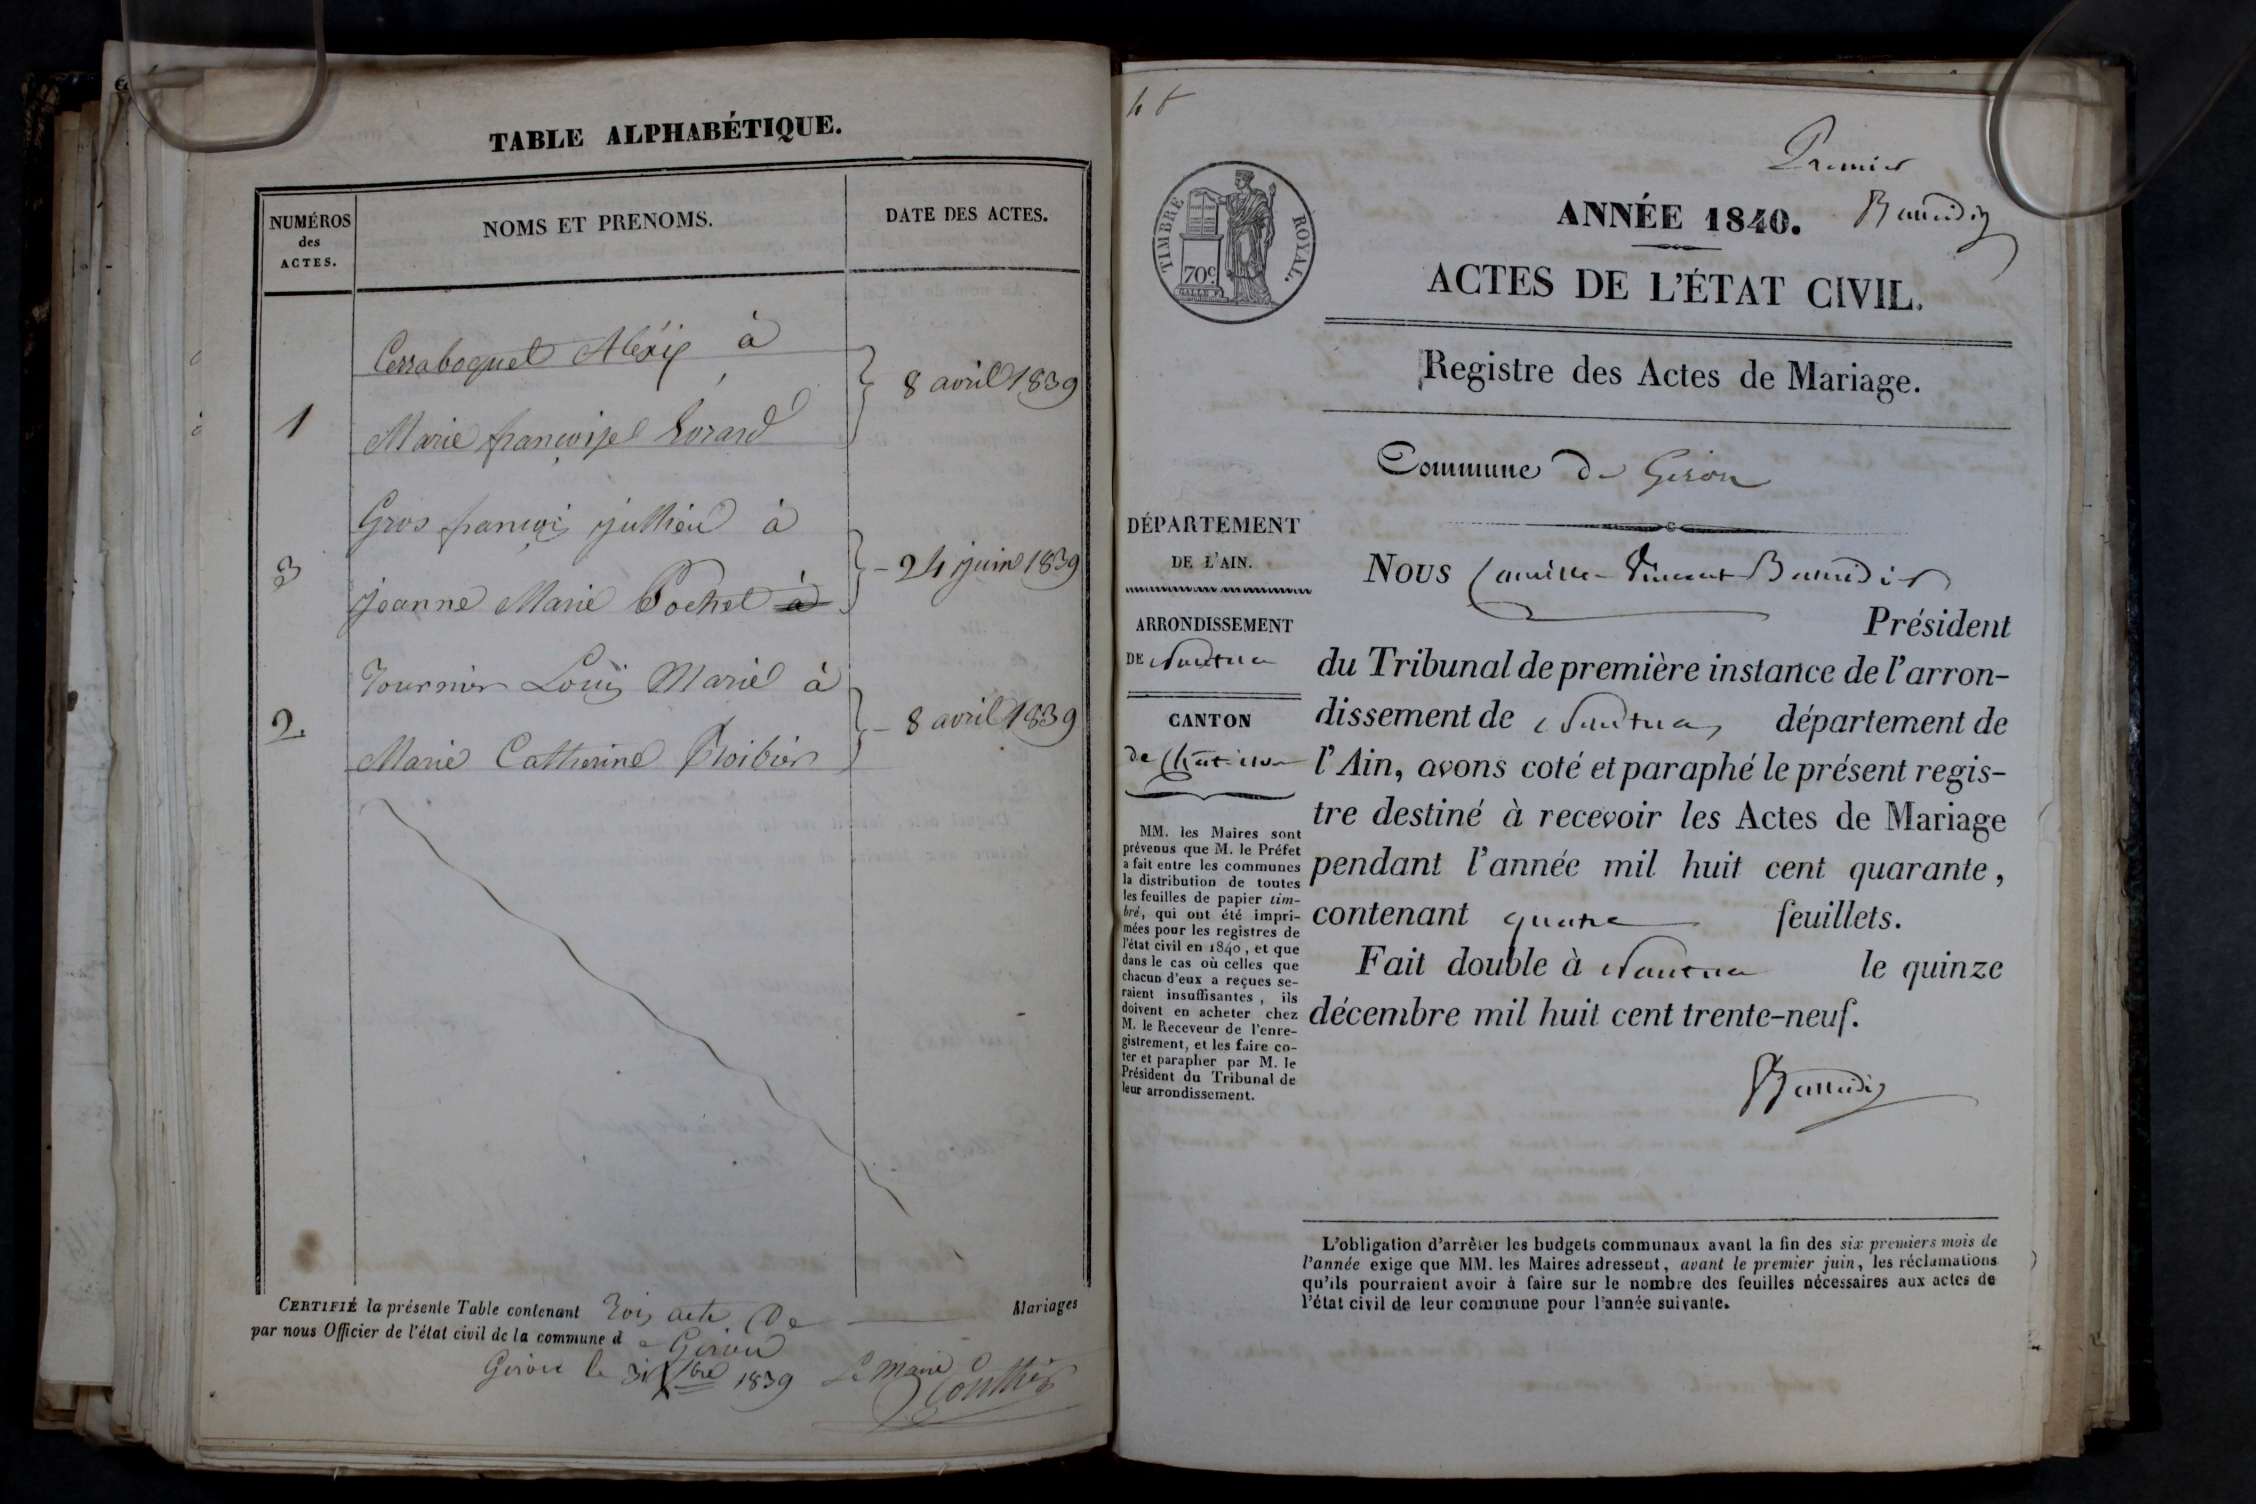 TABLE ALPHABÉTIQUE.
NUMÉROS
des
ACTES.
NOMS ET PRENOMS.
DATE DES ACTES.
1
Cerraboquet Aléxis à
Marie françoise
8 avril 1839
3
Gros françois jullien à
jeanne Marie Pochet à
24 juin 1839
2
Tournier Louis Marie à
Marie Catherine
8 avril 1839
CERTIFIÉ la présente Table contenant Trois acte De Mariages
par nous Officier de l'état civil de la commune de Giron
Giron le 31 Xbre 1839 Le Maire
TIMBRE ROYAL.
70c.
GALLE F.
Premier
Baudin
ANNÉE 1840.
ACTES DE L'ÉTAT CIVIL.
Registre des Actes de Mariage.
Commune de Giron
DÉPARTEMENT
DE L'AIN.
ARRONDISSEMENT
DE Nantua
CANTON
de Châtillon
MM. les Maires sont
prévenus que M. le Préfet
a fait entre les communes
la distribution de toutes
les feuilles de papier tim-
bré, qui ont été impri-
mées pour les registres de
l'état civil en 1840, et que
dans le cas où celles que
chacun d'eux a reçues se-
raient insuffisantes, ils
doivent en acheter chez
M. le Receveur de l'enre-
gistrement, et les faire co-
ter et parapher par M. le
Président du Tribunal de
leur arrondissement.
Nous Camille Vincent Baudin
Président
du Tribunal de première instance de l'arron-
dissement de Nantua, département de
l'Ain, avons coté et paraphé le présent regis-
tre destiné à recevoir les Actes de Mariage
pendant l'année mil huit cent quarante,
contenant quatre feuillets.
Fait double à Nantua le quinze
décembre mil huit cent trente-neuf.
Baudin
L'obligation d'arrêter les budgets communaux avant la fin des six premiers mois de
l'année exige que MM. les Maires adressent, avant le premier juin, les réclamations
qu'ils pourraient avoir à faire sur le nombre des feuilles nécessaires aux actes de
l'état civil de leur commune pour l'année suivante.